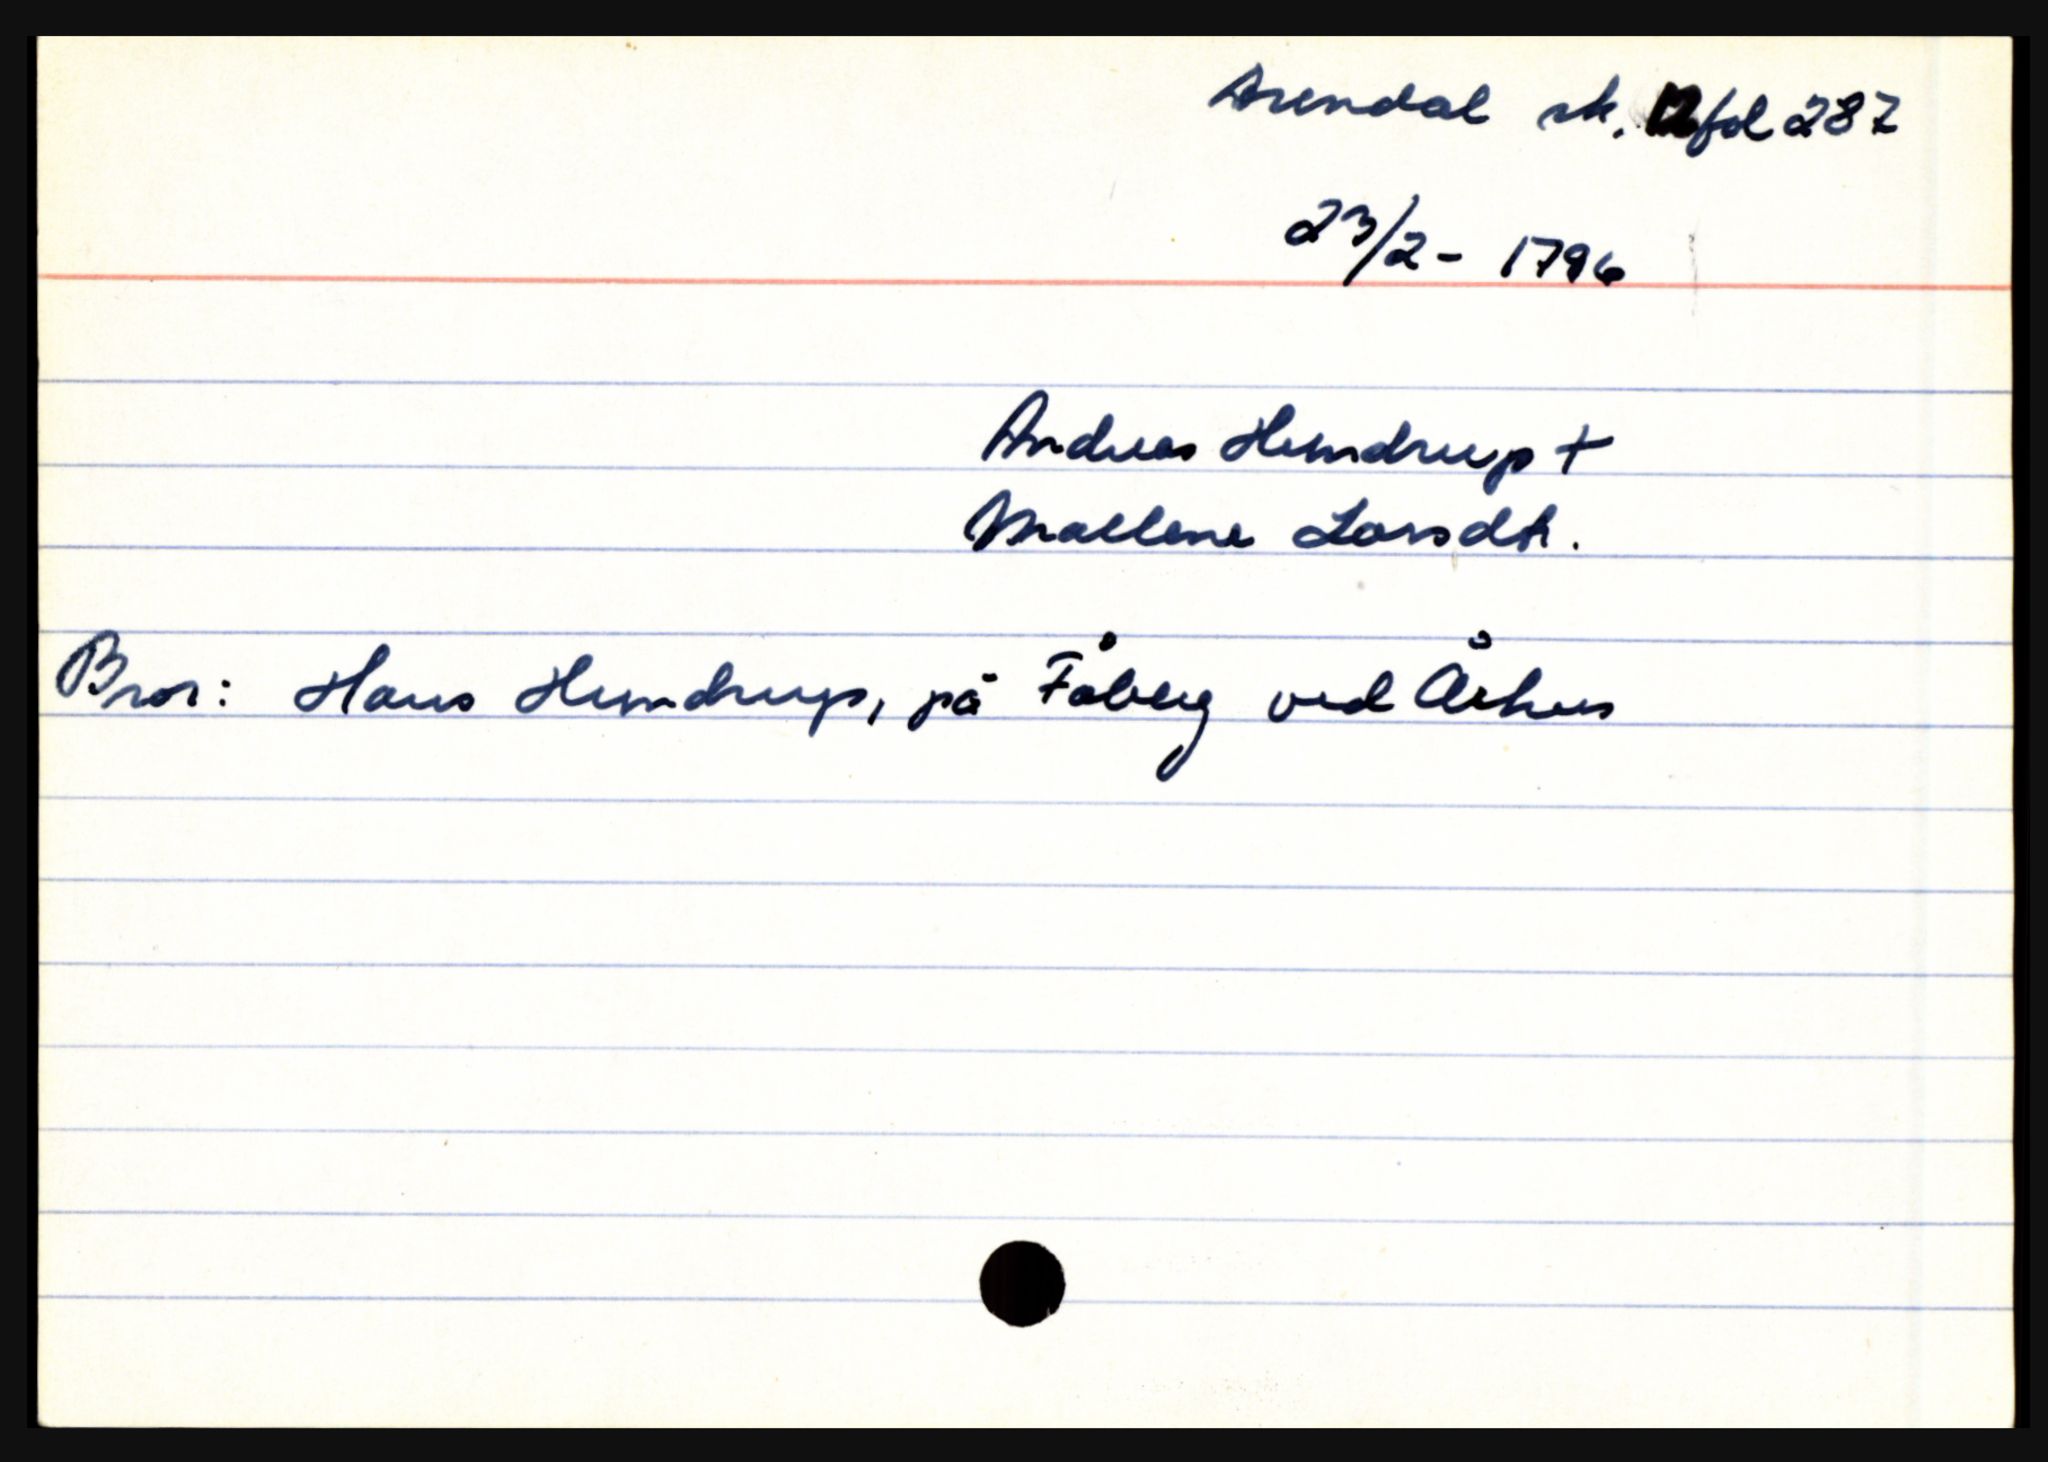 Arendal sk. 12 fol 287
23/2 - 1796
Andreas Hemdrup +
Mallene Larsdt.
Bror: Hans Hemdrup, på Fåberg ved Århus